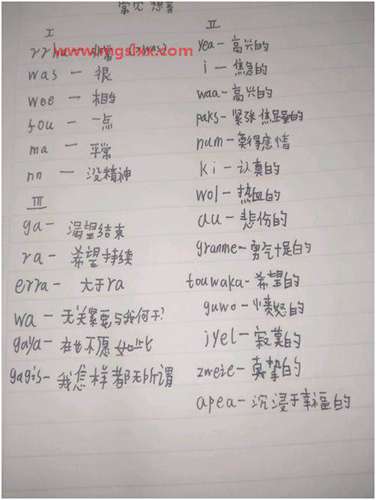 常见想音
I
rrha — 非常 (was)
was — 很
wee — 相当
fou — 一点
ma — 平常
nn — 没精神
III
ga — 渴望结束
ra — 希望持续
erra — 大于ra
wa — 无关紧要与我何干?
gaya — 在也不愿如此
gagis — 我怎样都无所谓
II
yea — 高兴的
i — 焦急的
waa — 高兴的
paks — 紧张焦虑的
num — 莫得感情
ki — 认真的
wol — 热血的
au — 悲伤的
granme — 勇气十足的
touwaka — 希望的
guwo — 愤怒的
iyel — 寂寞的
zweie — 真挚的
apea — 沉浸于幸福的